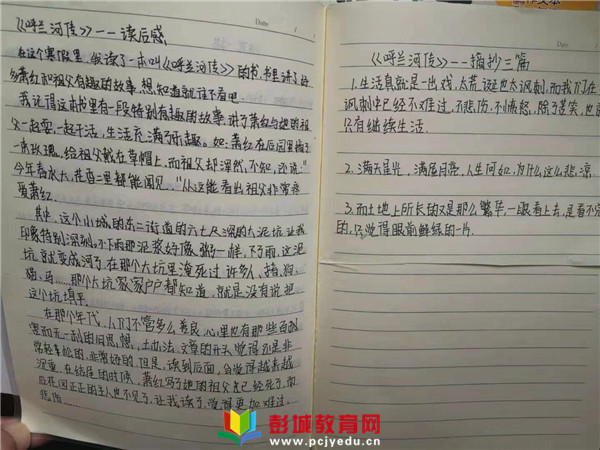 《呼兰河传》---读后感
在这个寒假里,我读了一本叫《呼兰河传》的书,书里讲了好
多萧红和祖父有趣的故事,想知道就往下看吧。
我记得这本书里有一段特别有趣的故事,讲了萧红与她的祖
父一起耍,一起干活,生活充满了乐趣。如:萧红在后园里摘了
一朵玫瑰,给祖父戴在草帽上,而祖父却浑然不知,还说:“
今年春水大,
”从这能看出祖父非常疼
爱萧红。
其中,这个小城的东二街道的六七尺深的大泥坑让我
印象特别深刻。不下雨那泥浆好像粥一样,下了雨,这泥
坑就变成河了。在那个大坑里淹死过许多人、猪、狗、
猫、马……那个大坑家家户户都知道,就是没有说把
这个坑填平。
在那个年代,人们不管多么善良,心里也有那些
文章的开头觉得
但是,读到后面,会觉得越来越
沉重。在结尾的时候,萧红写了她的祖父也已经死了,而
后花园
让我读了,觉得更加难过、
悲伤……
《呼兰河传》---摘抄三篇
1.生活真就是一出戏,太荒诞也太讽刺,而我们在
讽刺中已经不难过,不悲伤,不愤怒,除了苦笑,也
只有继续生活。
2.满天星光,满屋月亮,人生何如,为什么这么悲凉。
3.而土地上所长的又是那么繁华,一眼看上去,是看不完
的,只觉得眼前鲜绿的一片。
彭城教育网
www.pcjyedu.cn